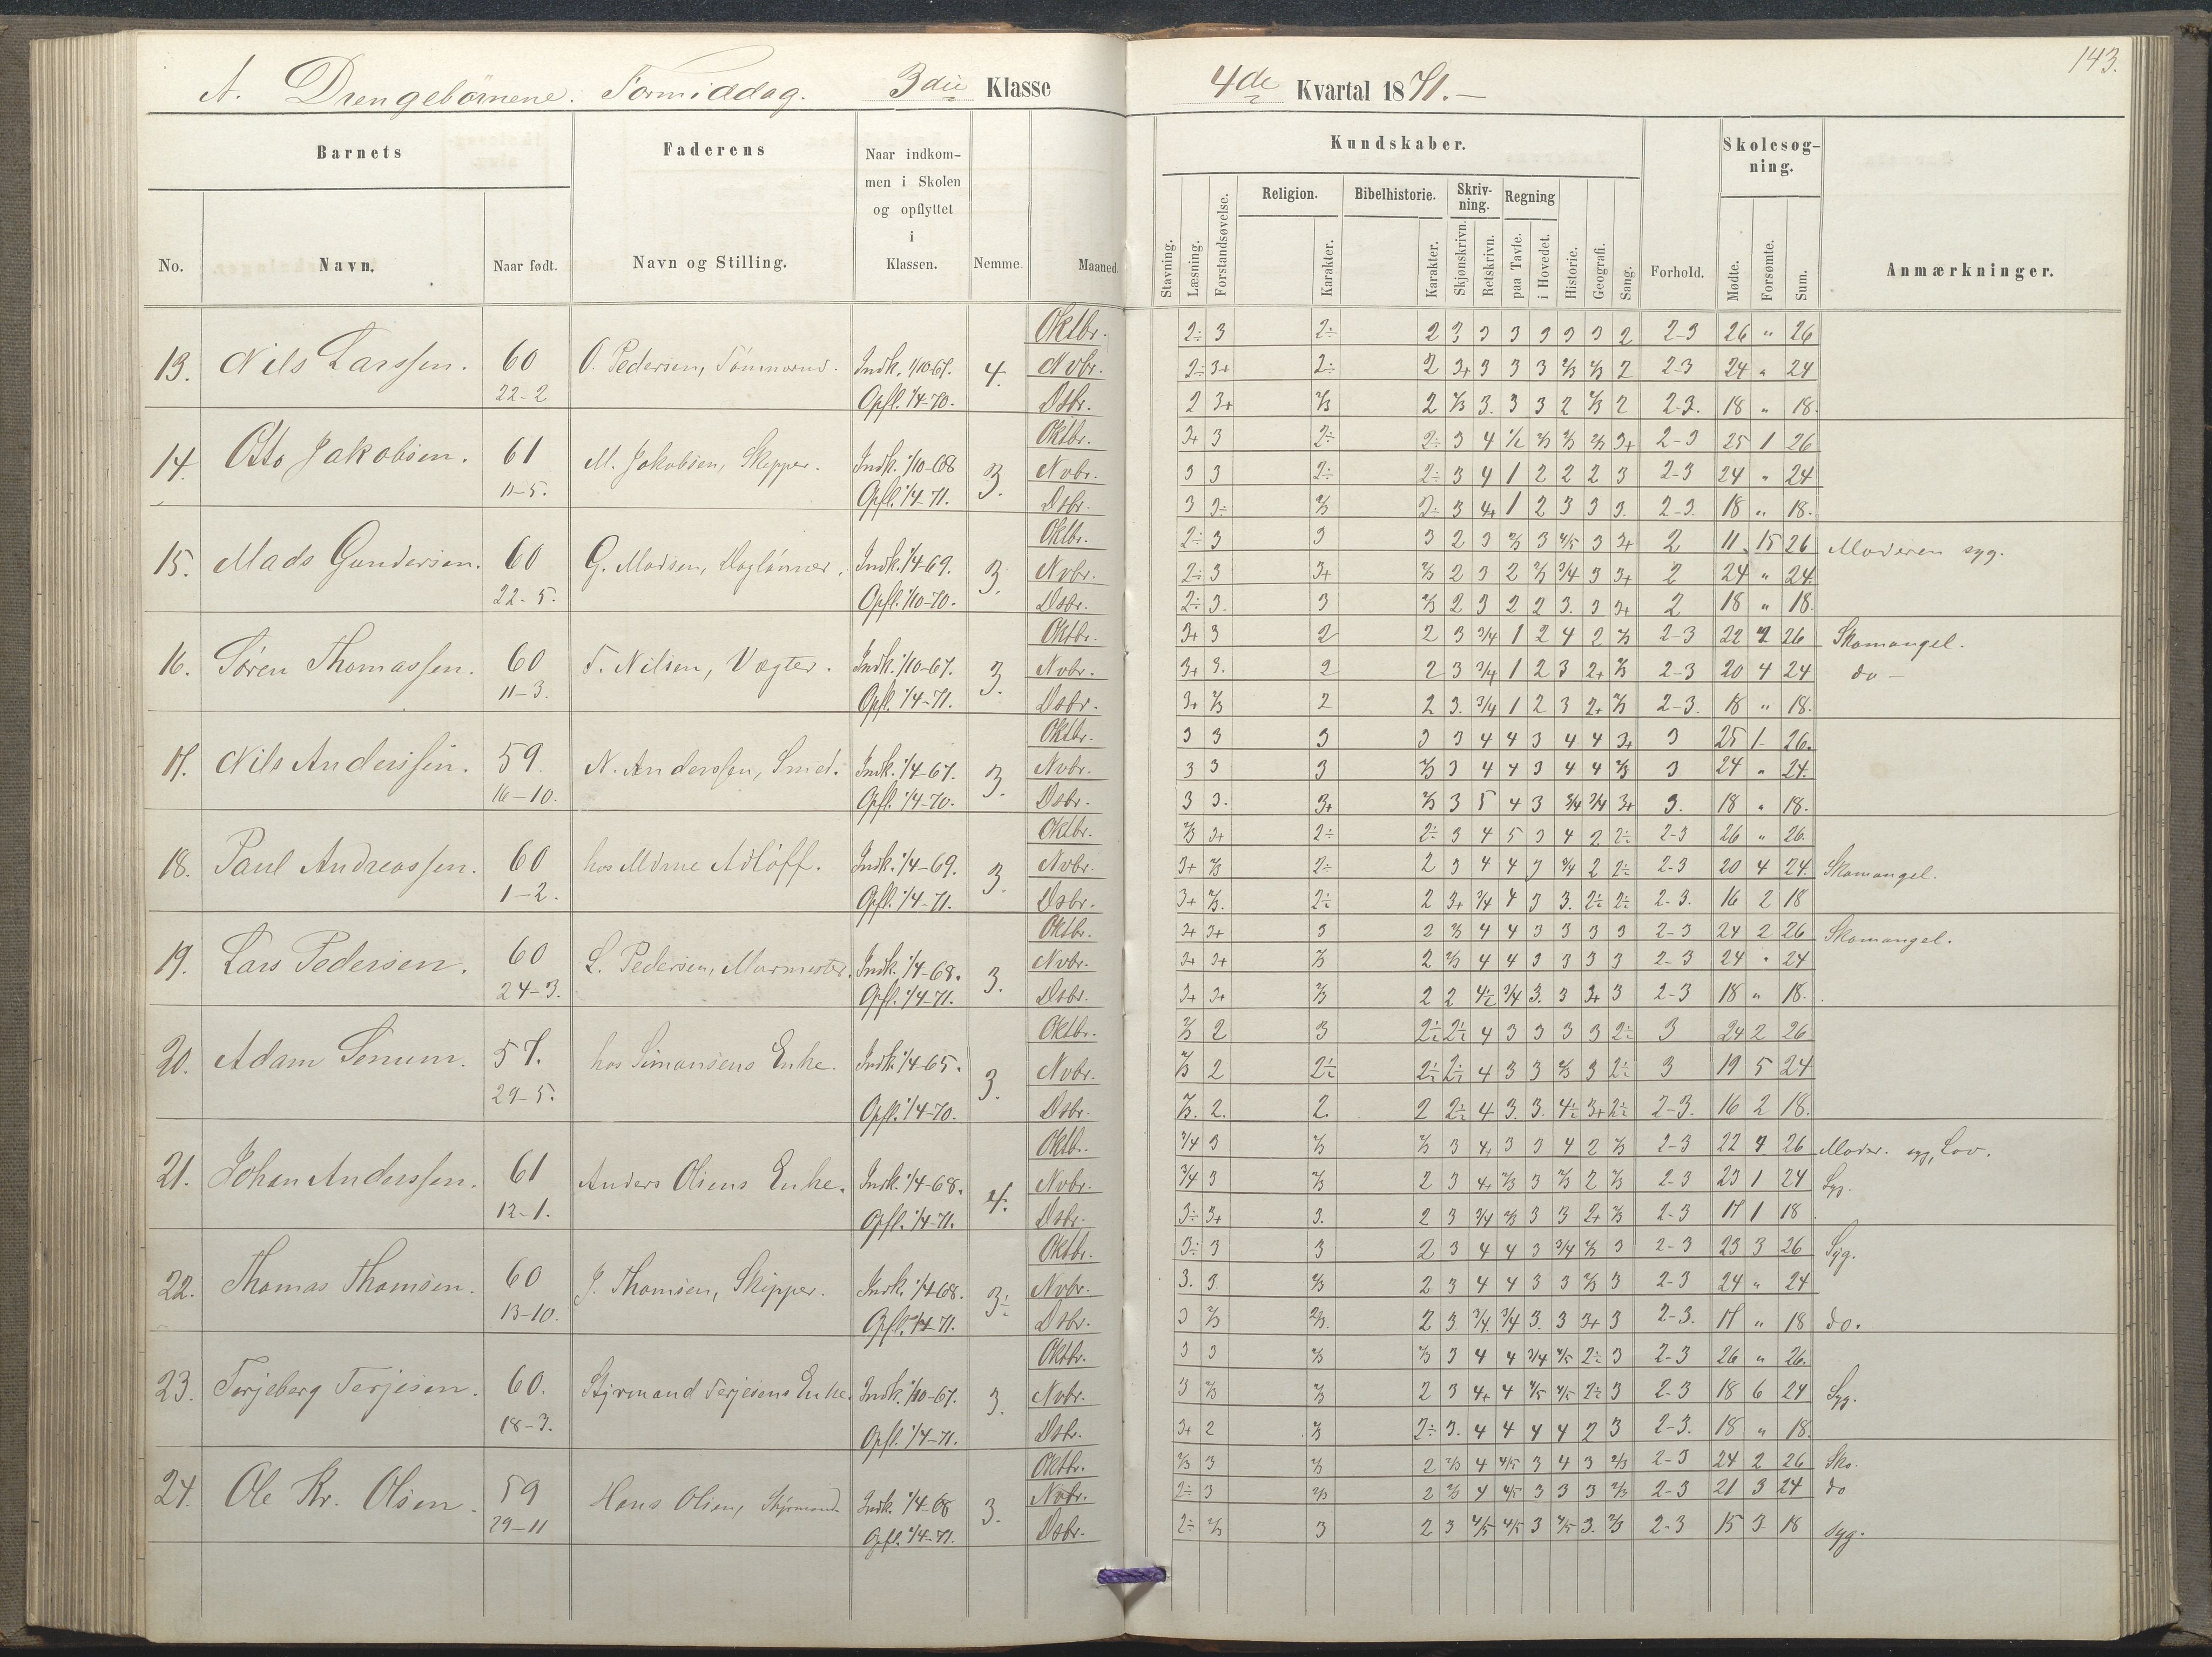 143.
A. Drengebörnene. Formiddag. 3die Klasse 4de Kvartal 1871.
Barnets Faderens Naar indkommen i Skolen og opflyttet i Klassen. Nemme. Maaned.
No. Navn. Naar født. Navn og Stilling.
Kundskaber. Skolesøgning.
Stavning. Læsning. Forstandsøvelse. Religion. Karakter. Bibelhistorie. Karakter. Skrivning. Skjønskrivn. Retskrivn. Regning paa Tavle. i Hovedet. Historie. Geografi. Sang. Forhold. Mødte. Forsømte. Sum. Anmærkninger.
13. Nils Larssen. 60 22-2 O. Pedersen, Indk. 1/10 67. Opfl. 1/4-70. 4.
Oktbr. 2÷ 3 2÷ 2 3 3 3 3 3 3 2 2-3 26 " 26
Nvbr. 2÷ 3+ 2÷ 2 3+ 3 3 3 2/3 2/3 2 2-3 24 " 24
Dsbr. 2 3+ 2/3 2 2/3 3. 3 3 2 2/3 2 2-3. 18 " 18.
14. Otto Jakobsen. 61 11-5. M. Jakobsen, Skipper. Indk. 1/10-68 Opfl. 1/4-71. 3.
Oktbr. 3+ 3 2÷ 2÷ 3 4 1/2 2/3 2/3 2/3 3+ 2-3 25 1 26
Nvbr. 3 3 2÷ 2÷ 3 4 1 2 2 2 3 2-3 24 " 24
Dsbr. 3 3÷ 2/3 2÷ 3 4+ 1 2 3 3 3. 2-3. 18 " 18.
15. Mads Gundersen. 60 22-5. G. Madsen, Daglønner. Indk. 1/4 69. Opfl. 1/10-70. 3.
Oktbr. 2÷ 3 3 3 2 3 2/3 3 4/5 3 3+ 2 11 15 26 Moderen syg.
Nvbr. 2÷ 3 3+ 2/3 2 3 2 2/3 3/4 3 3+ 2 24 " 24.
Dsbr. 2÷ 3. 3 2/3 2 3 2 2 3. 3 3+ 2 18 " 18.
16. Søren Thomassen. 60 11-3. T. Nilsen, Vægter. Indk. 1/10-67. Opfl. 1/4-71. 3.
Oktbr. 3+ 3 2 2 3 3/4 1 2 4 2 2/3 2-3 22 4 26 Skomangel.
Nvbr. 3+ 3. 2 2 3 3/4 1 2 3 2+ 2/3 2-3 20 4 24 do
Dsbr. 3+ 2/3 2 2 3. 3/4 1 2 3 2+ 2/3 2-3. 18 " 18.
17. Nils Anderssen. 59. 16-10. N. Anderssen, Smed. Indk. 1/4-67. Opfl. 1/4-70. 3.
Oktbr. 3 3 3 3 3 4 4 3 4 4 3+ 3 25 1 26.
Nvbr. 3 3 3 2/3 3 4 4 3 4 4 2/3 3 24 " 24.
Dsbr. 3 3. 3+ 2/3 3 5 4 3 3/4 3/4 3+ 3. 18 " 18.
18. Paul Andreassen. 60 1-2. hos Mdme Adtöff. Indk. 1/4-69. Opfl. 1/4-71. 3.
Oktbr. 2/3 3+ 2÷ 2÷ 3 4 5 3 4 2 2÷ 2-3 26 " 26.
Nvbr. 3+ 2/3 2÷ 2 3 4 4 3 3/4 2 2÷ 2-3 20 4 24. Skomangel.
Dsbr. 3+ 2/3. 2÷ 2 3+ 3/4 4 3 3. 2÷ 2÷ 2-3. 16 2 18
19. Lars Pedersen. 60 24-3. L. Pedersen, Murmester. Indk. 1/4-68. Opfl. 1/4-71. 3.
Oktbr. 3+ 3+ 3 2 2/3 4 4 3 3 3 3 2-3 24 2 26 Skomangel.
Nvbr. 3+ 3+ 2/3 2 2/3 4 4 3 3 3 3 2-3 24 " 24
Dsbr. 3+ 3+ 2/3 2 2 4÷ 3/4 3. 3 3+ 3 2-3 18 " 18.
20. Adam Senum. 57. 29-5. hos Simonsens Enke. Indk. 1/4 65. Opfl. 1/4-70. 3.
Oktbr. 2/3 2 3 2÷ 2÷ 4 3 3 3 3 2÷ 3 24 2 26
Nvbr. 2/3 2 2÷ 2÷ 2÷ 4 3 3 2/3 3 2÷ 3 19 5 24
Dsbr. 2/3. 2. 2. 2 2÷ 4 3. 3. 4÷ 3+ 2÷ 2-3. 16 2 18.
21. Johan Anderssen. 61 12-1. Anders Olsens Enke. Indk. 1/4-68. Opfl. 1/4-71. 4.
Oktb. 3/4 3 2/3 2/3 3 4+ 3 3 4 2 2/3 2-3 22 4 26 Moder. syg, Lov.
Nvbr. 3/4 3 2/3 2 3 4+ 2/3 3 2/3 2 2/3 2-3 23 1 24 Syg.
Dsbr. 3÷ 3+ 3. 2 3 3/4 2/3 3 3 2+ 2/3 2-3 17 1 18
22. Thomas Thomsen. 60 13-10. J. Thomsen, Skipper. Indk. 1/4-68. Opfl. 1/4-71. 3÷
Oktbr. 3÷ 3 3 2 3 4 4 3 3/4 2/3 3 2-3 23 3 26 Syg.
Nvbr. 3. 3. 2/3 2 3 4 4 3 3 2/3 3 2-3 24 " 24
Dsbr. 3 2/3 2/3. 2 3. 3/4 3/4 3. 3 3+ 3 2-3. 17 " 18 do.
23. Terjeberg Terjesen. 60. 18-3. Styrmand Terjesens Enke. Indk. 1/10-67. Opfl. 1/4-71. 3.
Oktbr. 3 3 2/3 2/3 3 4 4 3/4 4/5 2÷ 3 2-3 26 " 26.
Nvbr. 3 2/3 2/3 2 3 4+ 4 4/5 4/5 2÷ 3 2-3 18 6 24 Syg.
Dsbr. 3+ 2 2/3 2÷ 3. 4 4 4 4 2 3 2-3. 18 " 18.
24. Ole Kr. Olsen. 59 29-11 Hans Olsen, Styrmand Indk. 1/4-68 Opfl. 1/4-71. 3.
Oktbr. 2/3 3 2/3 2 2/3 4 4/5 3 4 3 2/3 2-3 24 2 26 Sko.
Nvbr. 2÷ 3 2/3 2 2/3 4 4/5 3 3 3 2/3 2-3 21 3 24 do
Dsbr. 2÷ 2/3 3 2 3 4/5 4/5 3 4/5 3. 2/3 2-3 15 3 18 syg.